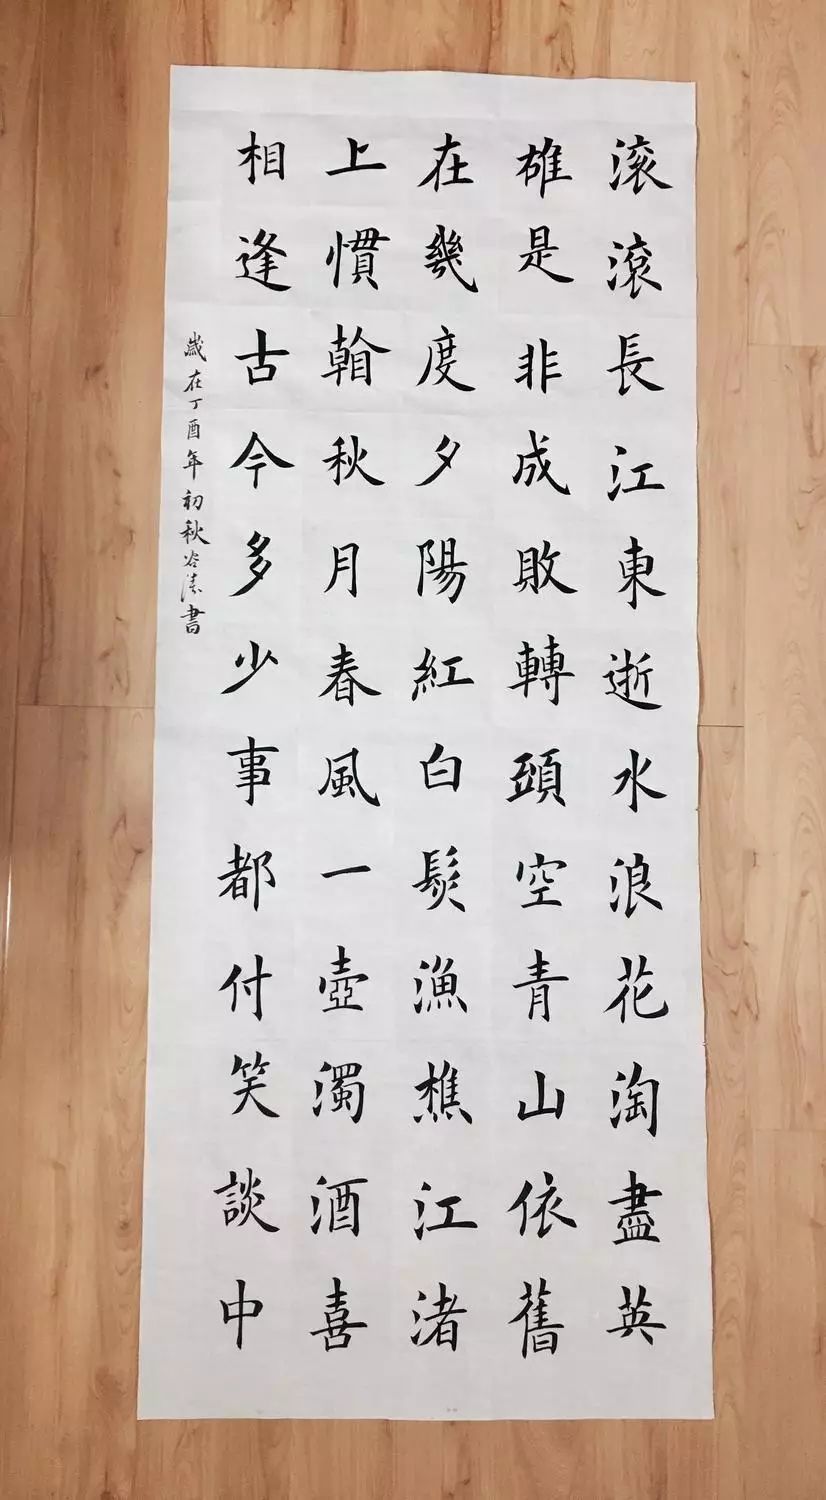 滚滾長江東逝水浪花淘盡英
雄是非成敗轉頭空青山依舊
在幾度夕陽紅白髮漁樵江渚
上慣看秋月春風一壺濁酒喜
相逢古今多少事都付笑談中
歲在丁酉年初秋谷書